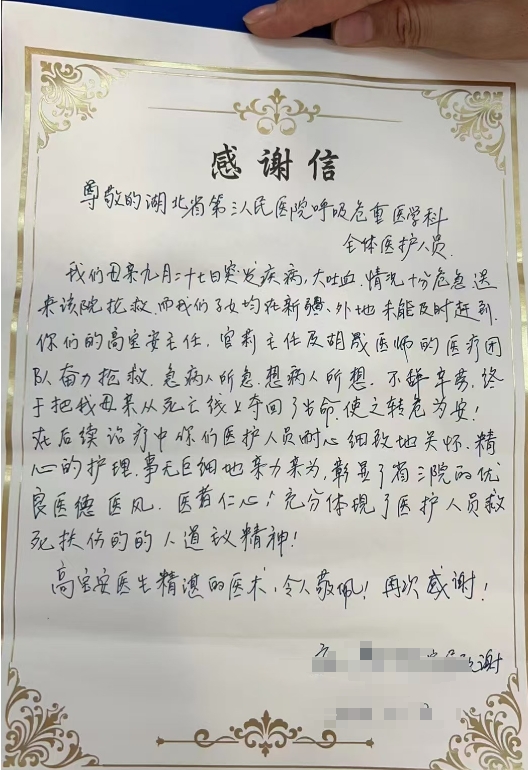 感谢信
尊敬的湖北省第三人民医院呼吸危重医学科
全体医护人员.
我们母亲九月二十七日突发疾病,大吐血.情况十分危急送
来该院抢救.而我们子女均在新疆、外地未能及时赶到.
你们的高宝安主任,官莉主任及胡晟医师的医疗团
队奋力抢救.急病人所急.想病人所想.不辞辛劳,终
于把我母亲从死亡线上夺回了生命,使之转危为安!
在后续诊疗中你们医护人员耐心细致地关怀.精
心的护理.事无巨细地亲力亲为,彰显了省三院的优
良医德医风.医者仁心!充分体现了医护人员救
死扶伤的的人道议精神!
高宝安医生精湛的医术,令人敬佩!再次感谢!
谢